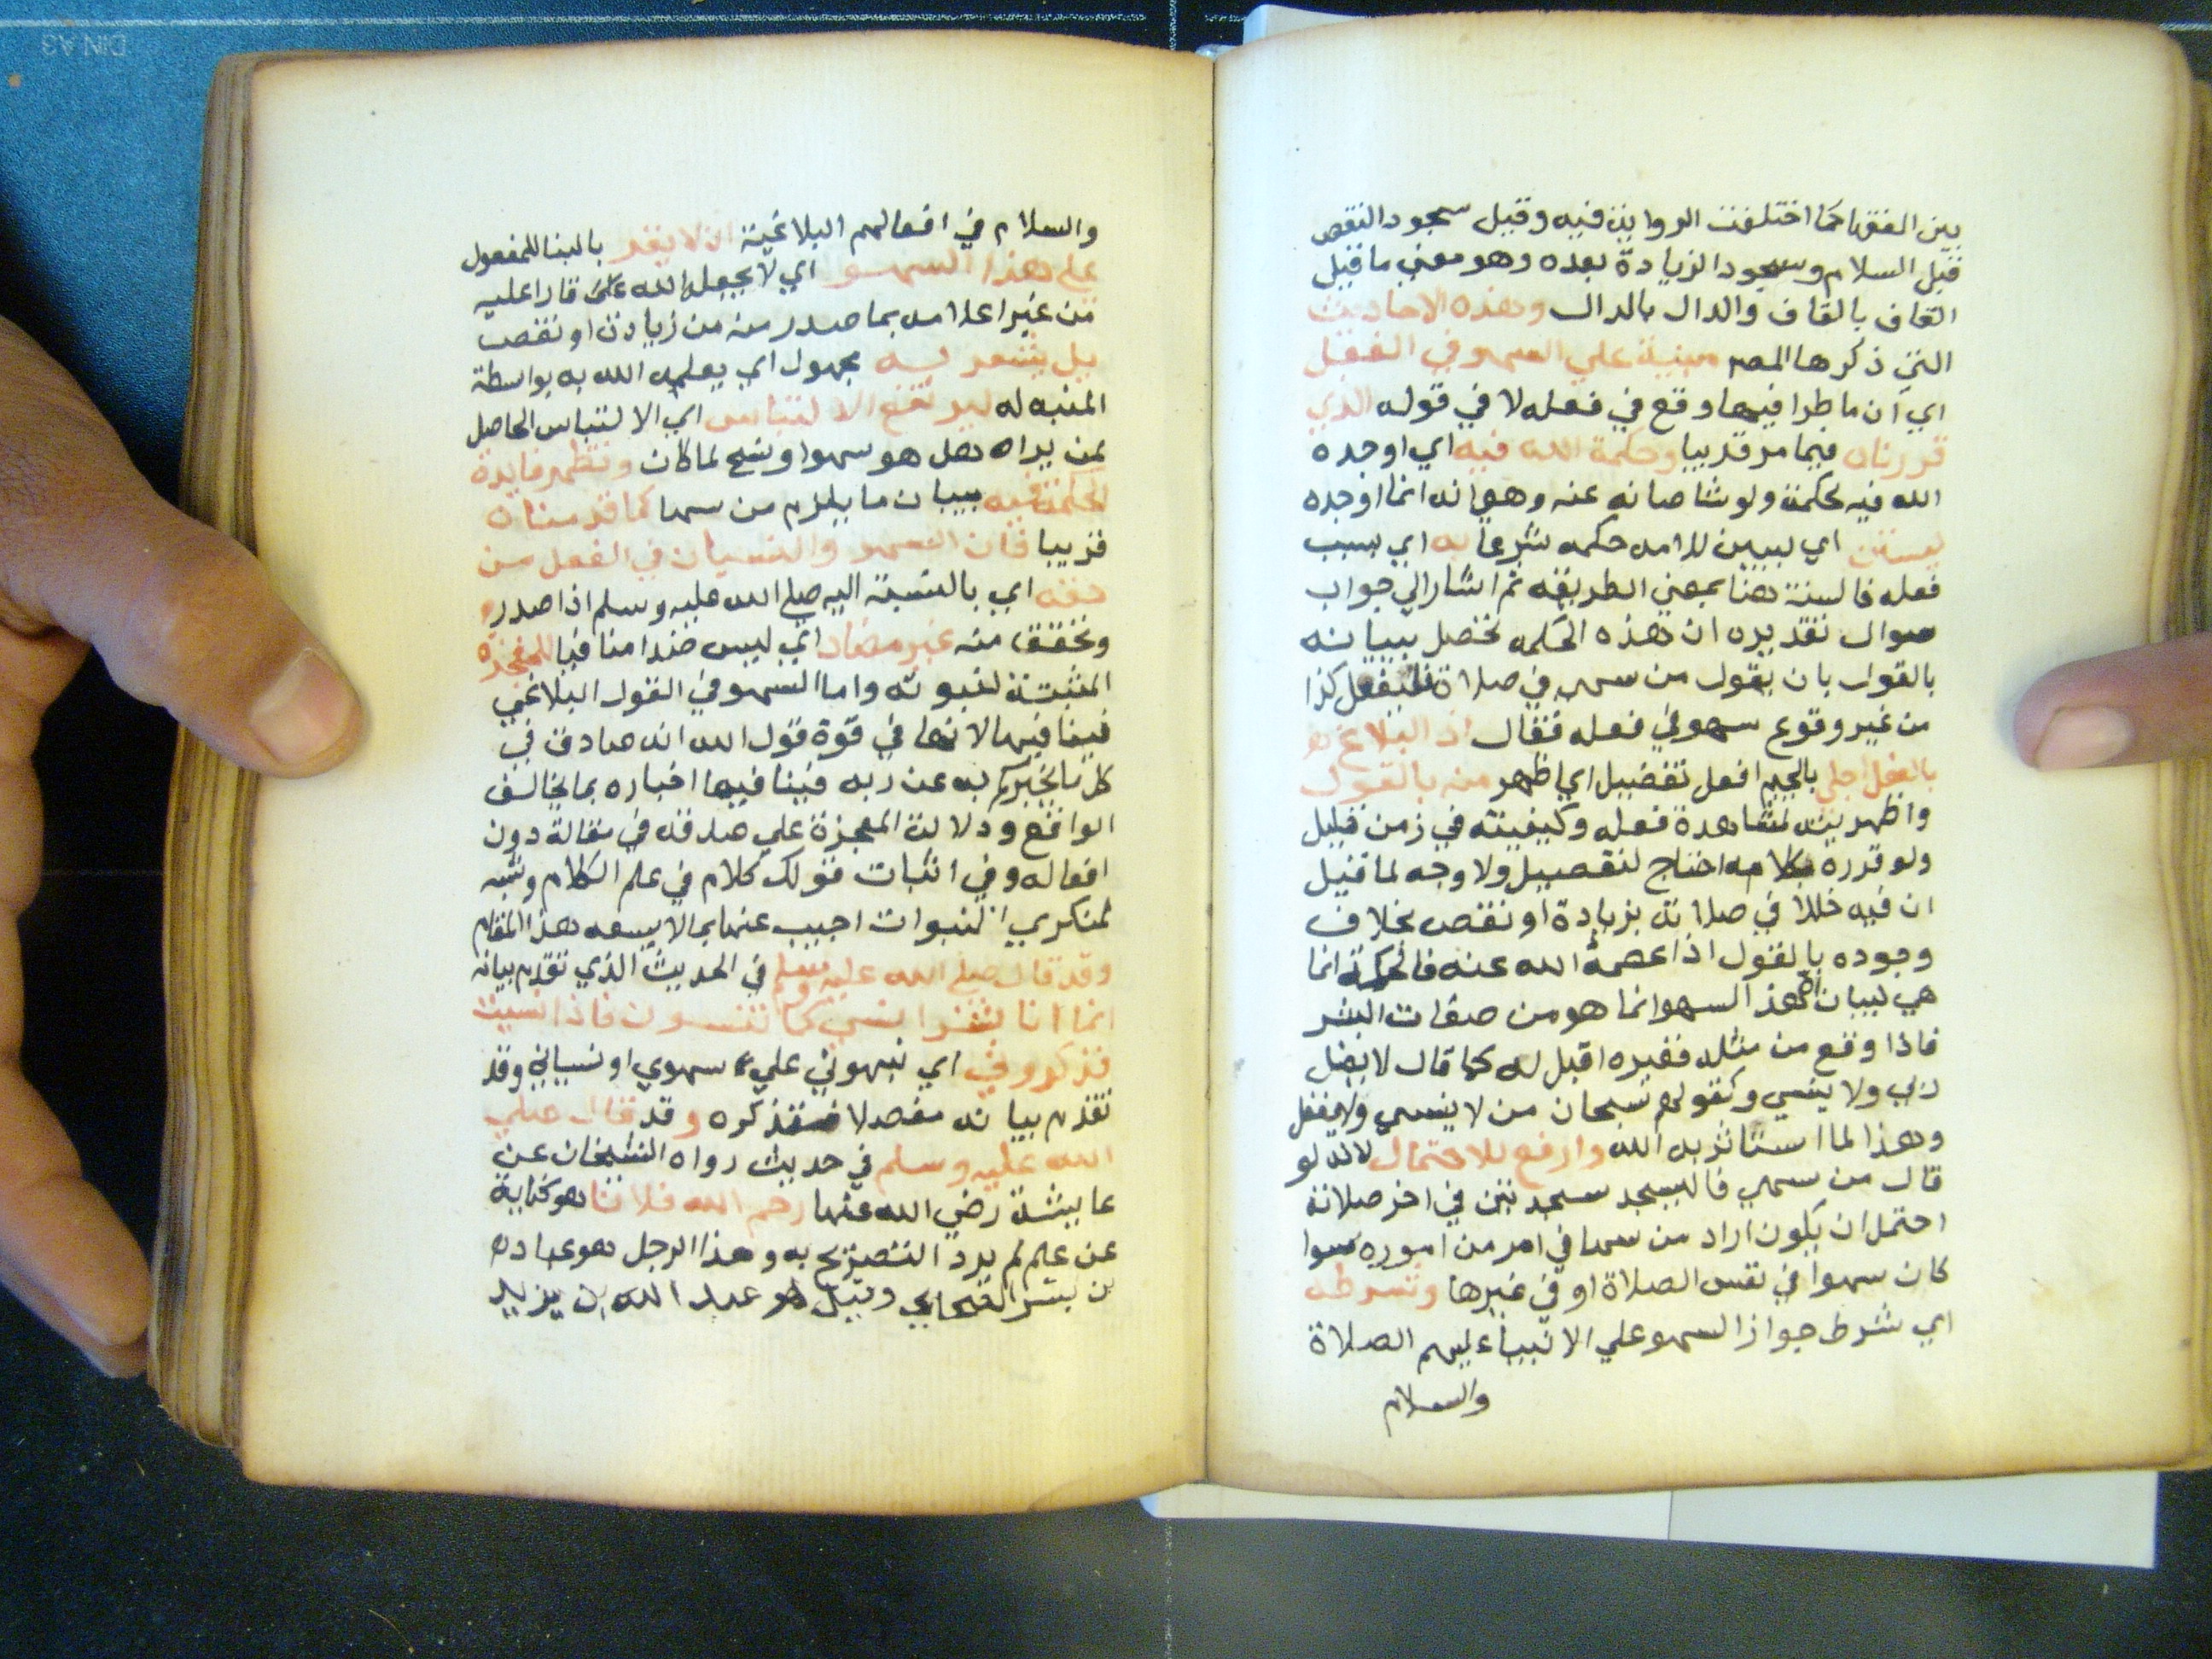 بين الفقها كما اختلفت الرواية فيه وقيل سجود النقص
قبل السلام وسجود الزيادة بعده وهو معني ما قيل
القاف بالقاف والدال بالدال وهذه الاحاديث
التي ذكرها المص مبنية علي السهو في الفعل
اي ان ما طرا فيها وقع في فعله لا في قوله الذي
قررناه فيما مر قريبا وحكمة الله فيه اي اوجده
الله فيه لحكمة ولو شا صانه عنه وهو انه انما اوجده
ليستن اي ليبين للامه حكمه شرعا به اي بسبب
فعله فالسنة هنا بمعني الطريقه ثم اشار الي جواب
سوال تقديره ان هذه الحكمه تحصل ببيانه
بالقول بان يقول من سهي في صلاة فليفعل كذا
من غير وقوع سهو في فعله فقال اذ البلاغ
بالفعل اجلي بالجيم افعل تفضيل اي اظهر منه بالقول
واظهريته لمشاهدة فعله وكيفيته في زمن قليل
ولو قرره بكلامه احتاج لتفصيل ولا وجه لما قيل
ان فيه خللا في صلاته بزيادة او نقص بخلاف
وجوده بالقول اذا عصمه الله عنه فالحكمة انما
هي لبيان ان هذا السهو انما هو من صفات البشر
فاذا وقع من مثله فغيره اقبل له كما قال لا يضل
ربي ولا ينسي وكقولهم سبحان من لا ينسي ولا يغفل
وهذا لما استاثر به الله وارفع للاحتمال لانه لو
قال من سهي فاليسجد سجدتين في اخر صلاته
احتمل ان يكون اراد من سها في امر من اموره سوا
كان سهوا في نفس الصلاة او في غيرها وشرطه
اي شرط جواز السهو علي الانبياء عليهم الصلاة
والسلام
والسلام في افعالهم البلاغية انه لا يقر بالبنا للمفعول
علي هذا السهو اي لا يجعله الله قارا عليه
من غير اعلامه بما صدر منه من زيادة او نقص
بل يشعر به مجهول اي يعلمه الله به بواسطة
المنبه له ليرتفع الالتباس اي الالتباس الحاصل
لمن يراه هل هو سهو او نسخ لما كان وتظهر فايدة
الحكمة فيه ببيان ما يلزم من سها كما قدمناه
قريبا فان السهو والنسيان في الفعل من
حقه اي بالنسبة اليه صلي الله عليه وسلم اذا صدر
وتحقق منه غير مضاد اي ليس ضدا منافيا للمعجزه
المثبتة لنبوته واما السهو في القول البلاغي
فينافيها لانها في قوة قول الله انه صادق في
كل ما يخبركم به عن ربه فينافيها اخباره بما يخالف
الواقع ودلالة المعجزة علي صدقه في مقالة دون
افعاله وفي اثبات قولك كلام في علم الكلام وشبه
لمنكري النبوات اجيب عنها بما لا يسعه هذا المقام
وقد قال صلي الله عليه وسلم في الحديث الذي تقدم بيانه
انما انا بشر انسي كما تنسون فاذا نسيت
فذكروني اي نبهوني علي سهوي او نسياني وقد
تقدم بيانه مفصلا فستذكره وقد قال صلي
الله عليه وسلم في حديث رواه الشيخان عن
عايشة رضي الله عنها رحم الله فلانا هو كناية
عن علم لم يرد التصريح به وهذا الرجل هو عباده
بن بشر الصحابي وقيل هو عبد الله بن يزيد